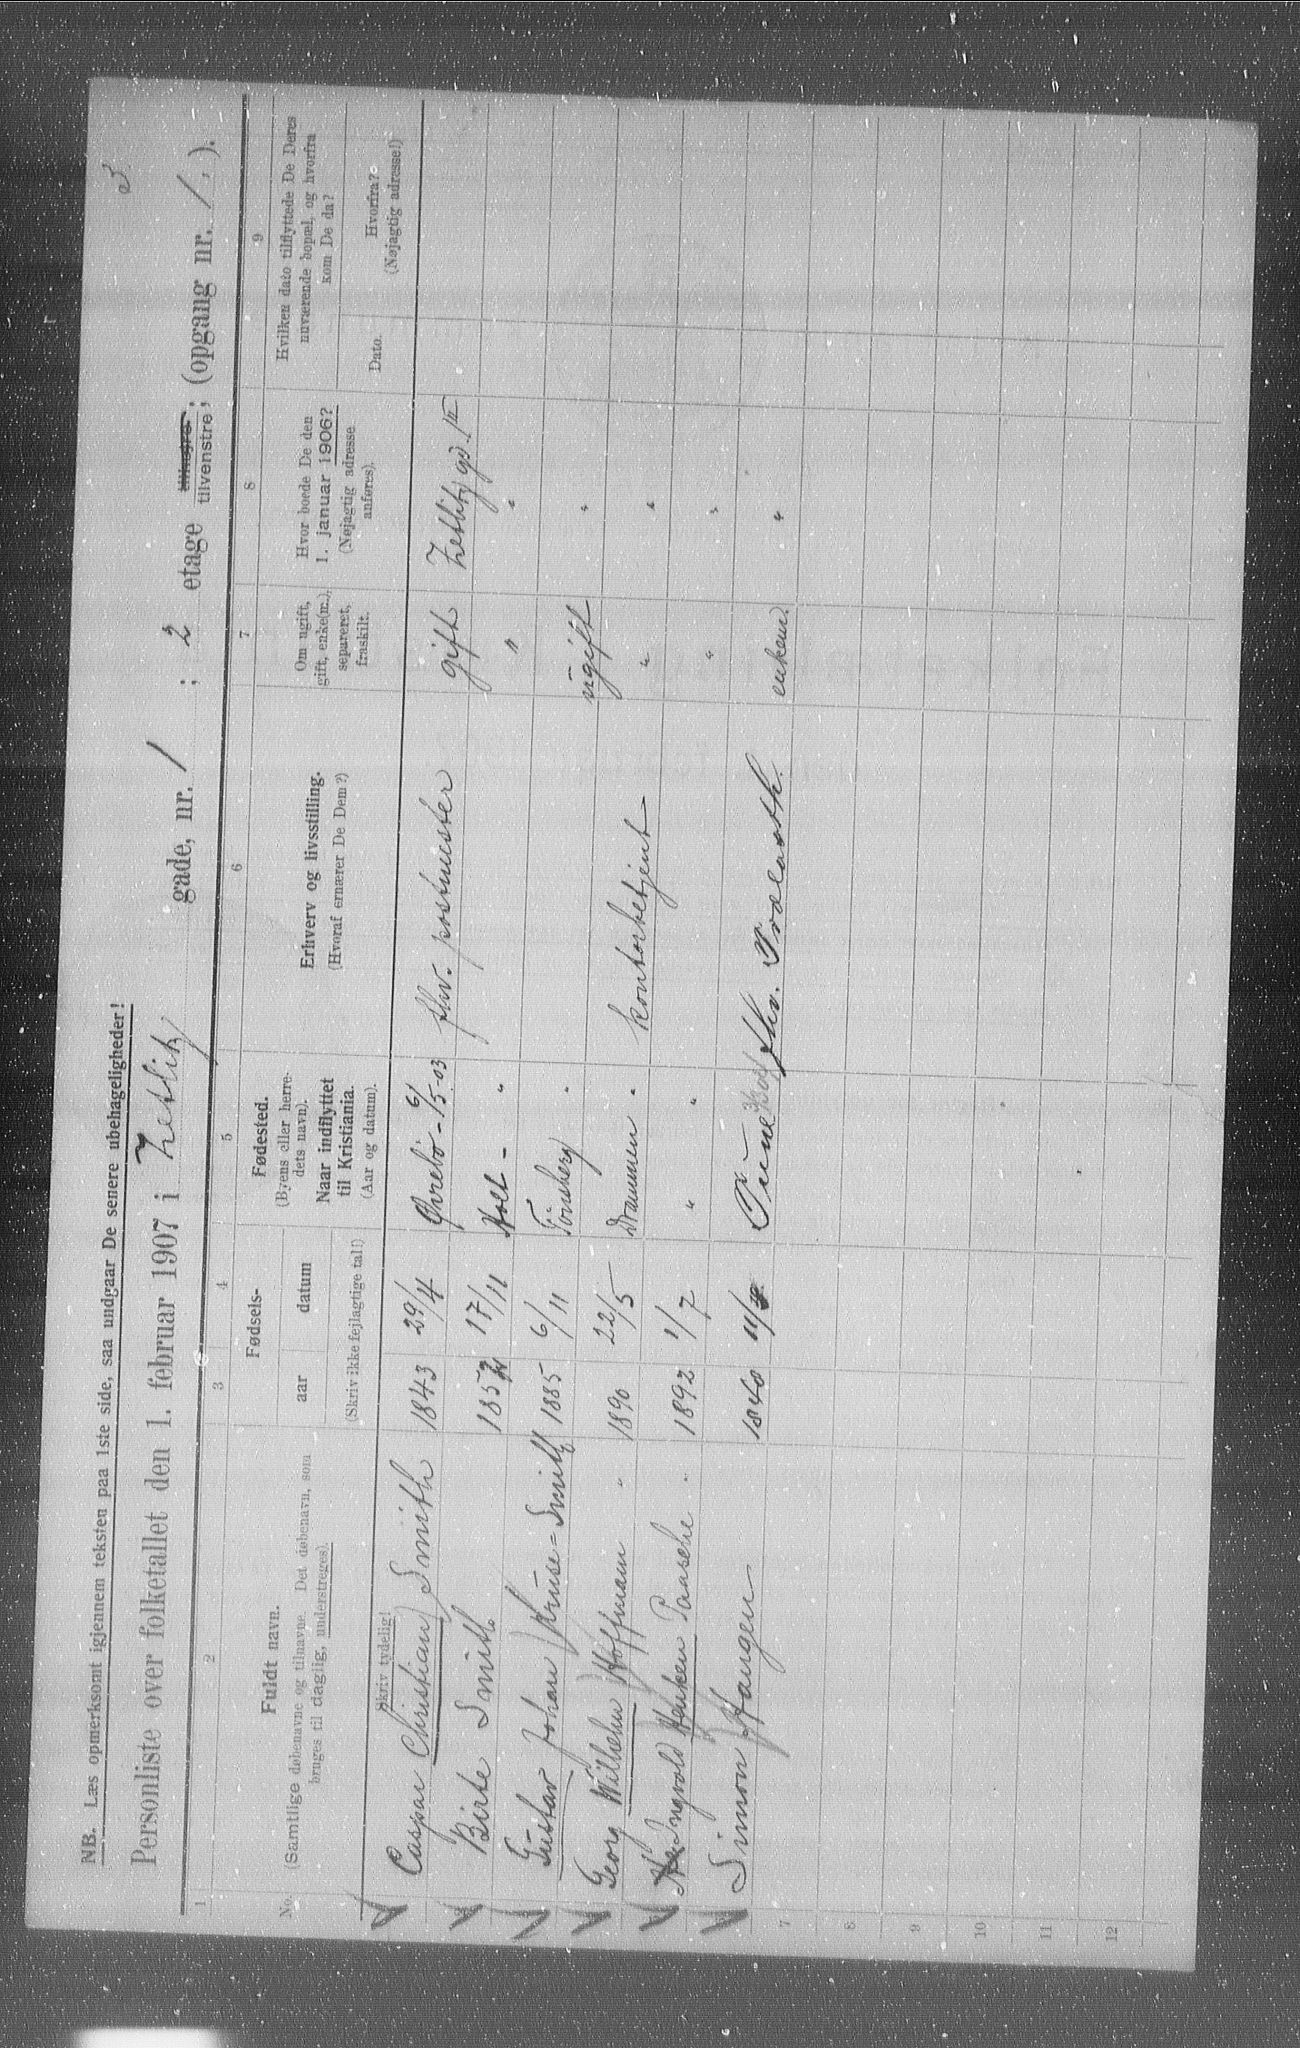 NB. Læs opmerksomt igjennem teksten paa 1ste side, saa undgaar De senere ubehageligheder!
Personliste over folketallet den 1. februar 1907 i Zetlitz gade, nr. 1 ; 2 etage tilhøjre, tilvenstre; (opgang nr. /, ).
1 2 3 4 5 6 7 8 9
No. Fuldt navn. (Samtlige døbenavne og tilnavne. Det døbenavn, som bruges til daglig, understreges). Skriv tydelig!
Fødsels- aar datum (Skriv ikke fejlagtige tal!)
Fødested. (Byens eller herredets navn). Naar indflyttet til Kristiania. (Aar og datum).
Erhverv og livsstilling. (Hvoraf ernærer De Dem?)
Om ugift, gift, enke(m.), separeret, fraskilt.
Hvor boede De den 1. januar 1906? (Nøjagtig adresse anføres).
Hvilken dato tilflyttede De Deres nuværende bopæl, og hvorfra kom De da?
Dato. Hvorfra? (Nøjagtig adresse!)
Caspar Christian Smith 1843 29/4 Øvrebö - 6/5-03 fhv. postmester gift Zetlitz gd. 1 II
Birte Smith 17/11 Holt - " " "
Gustav Johan Kruse-Smith 1885 6/11 Tönsberg " ugift "
Georg Wilhelm Hoffmann " 1890 22/5 Drammen " kontorbetjent " "
Ingvold Henken Paasche " 1892 1/7 " " " "
Simon Haugen 1840 fhv. enkem. "
7
8
9
10
11
12